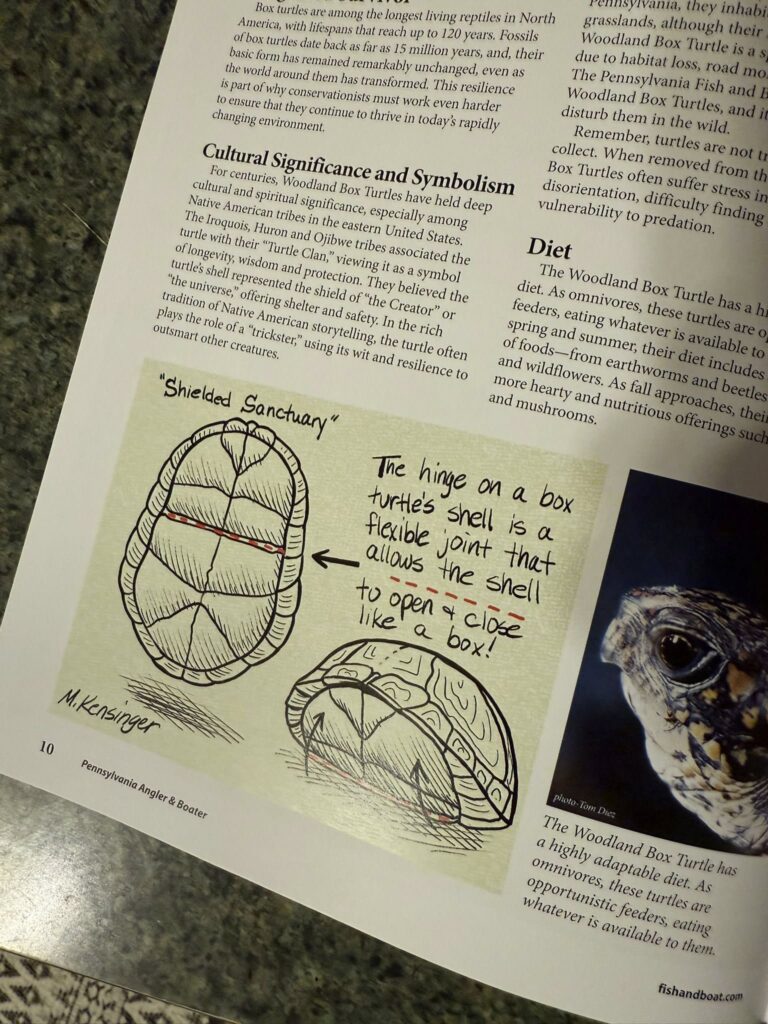 Box turtles are among the longest living reptiles in North
America, with lifespans that reach up to 120 years. Fossils
of box turtles date back as far as 15 million years, and, their
basic form has remained remarkably unchanged, even as
the world around them has transformed. This resilience
is part of why conservationists must work even harder
to ensure that they continue to thrive in today's rapidly
changing environment.
Cultural Significance and Symbolism
For centuries, Woodland Box Turtles have held deep
cultural and spiritual significance, especially among
Native American tribes in the eastern United States.
The Iroquois, Huron and Ojibwe tribes associated the
turtle with their "Turtle Clan," viewing it as a symbol
of longevity, wisdom and protection. They believed the
turtle's shell represented the shield of "the Creator" or
"the universe," offering shelter and safety. In the rich
tradition of Native American storytelling, the turtle often
plays the role of a "trickster," using its wit and resilience to
outsmart other creatures.
"Shielded Sanctuary"
The hinge on a box
turtle's shell is a
flexible joint that
allows the shell
to open & close
like a box!
M. Kensinger
10
Pennsylvania Angler & Boater
Pennsylvania, they inhabi
grasslands, although their
Woodland Box Turtle is a
due to habitat loss, road
The Pennsylvania Fish and
Woodland Box Turtles, and
disturb them in the wild.
Remember, turtles are not
collect. When removed from
Box Turtles often suffer stress
disorientation, difficulty finding
vulnerability to predation.
Diet
The Woodland Box Turtle has a
diet. As omnivores, these turtles are
feeders, eating whatever is available to
spring and summer, their diet includes
of foods—from earthworms and beetles
and wildflowers. As fall approaches,
more hearty and nutritious offerings such
and mushrooms.
photo-Tom Diez
The Woodland Box Turtle has
a highly adaptable diet. As
omnivores, these turtles are
opportunistic feeders, eating
whatever is available to them.
fishandboat.com